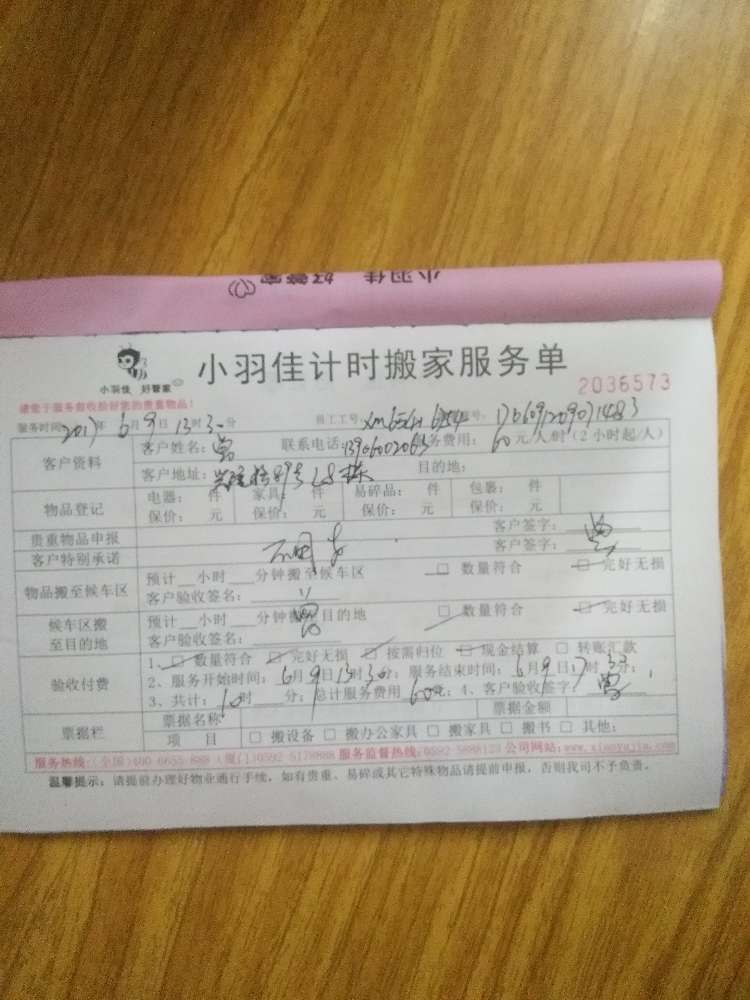 小羽佳 好管家
小羽佳 好管家
小羽佳计时搬家服务单
2036573
请您于服务前收捡好您的贵重物品！
服务时间：2017年6月9日13时30分 员工工号： 编号：170609120901483
客户资料
客户姓名：曾 联系电话：13906002063 服务费用：60元/人/时（2小时起/人）
客户地址： 目的地：
物品登记
电器： 件 家具： 件 易碎品： 件 包裹： 件
保价： 元 保价： 元 保价： 元 保价： 元
贵重物品申报 客户签字：曾
客户特别承诺 客户签字：
物品搬至候车区
预计 小时 分钟搬至候车区 □ 数量符合 □ 完好无损
客户验收签名：
候车区搬至目的地
预计 小时 分钟搬至目的地 □ 数量符合 □ 完好无损
客户验收签名：曾
验收付费
1、□ 数量符合 □ 完好无损 □ 按需归位 □ 现金结算 □ 转账汇款
2、服务开始时间：6月9日13时30分；服务结束时间：6月9日17时 分；
3、共计： 时 分；总计服务费用 元；4、客户验收签字：曾
票据栏
票据名称 票据金额
项 目 □ 搬设备 □ 搬办公家具 □ 搬家具 □ 搬书 □ 其他：
服务热线：(全国)400-6655-888 (厦门)0592-5178888 服务监督热线：0592-5888123 公司网站：www.xiaoyujia.com
温馨提示：请提前办理好物业通行手续，如有贵重、易碎或其它特殊物品请提前申报，否则我司不予负责。